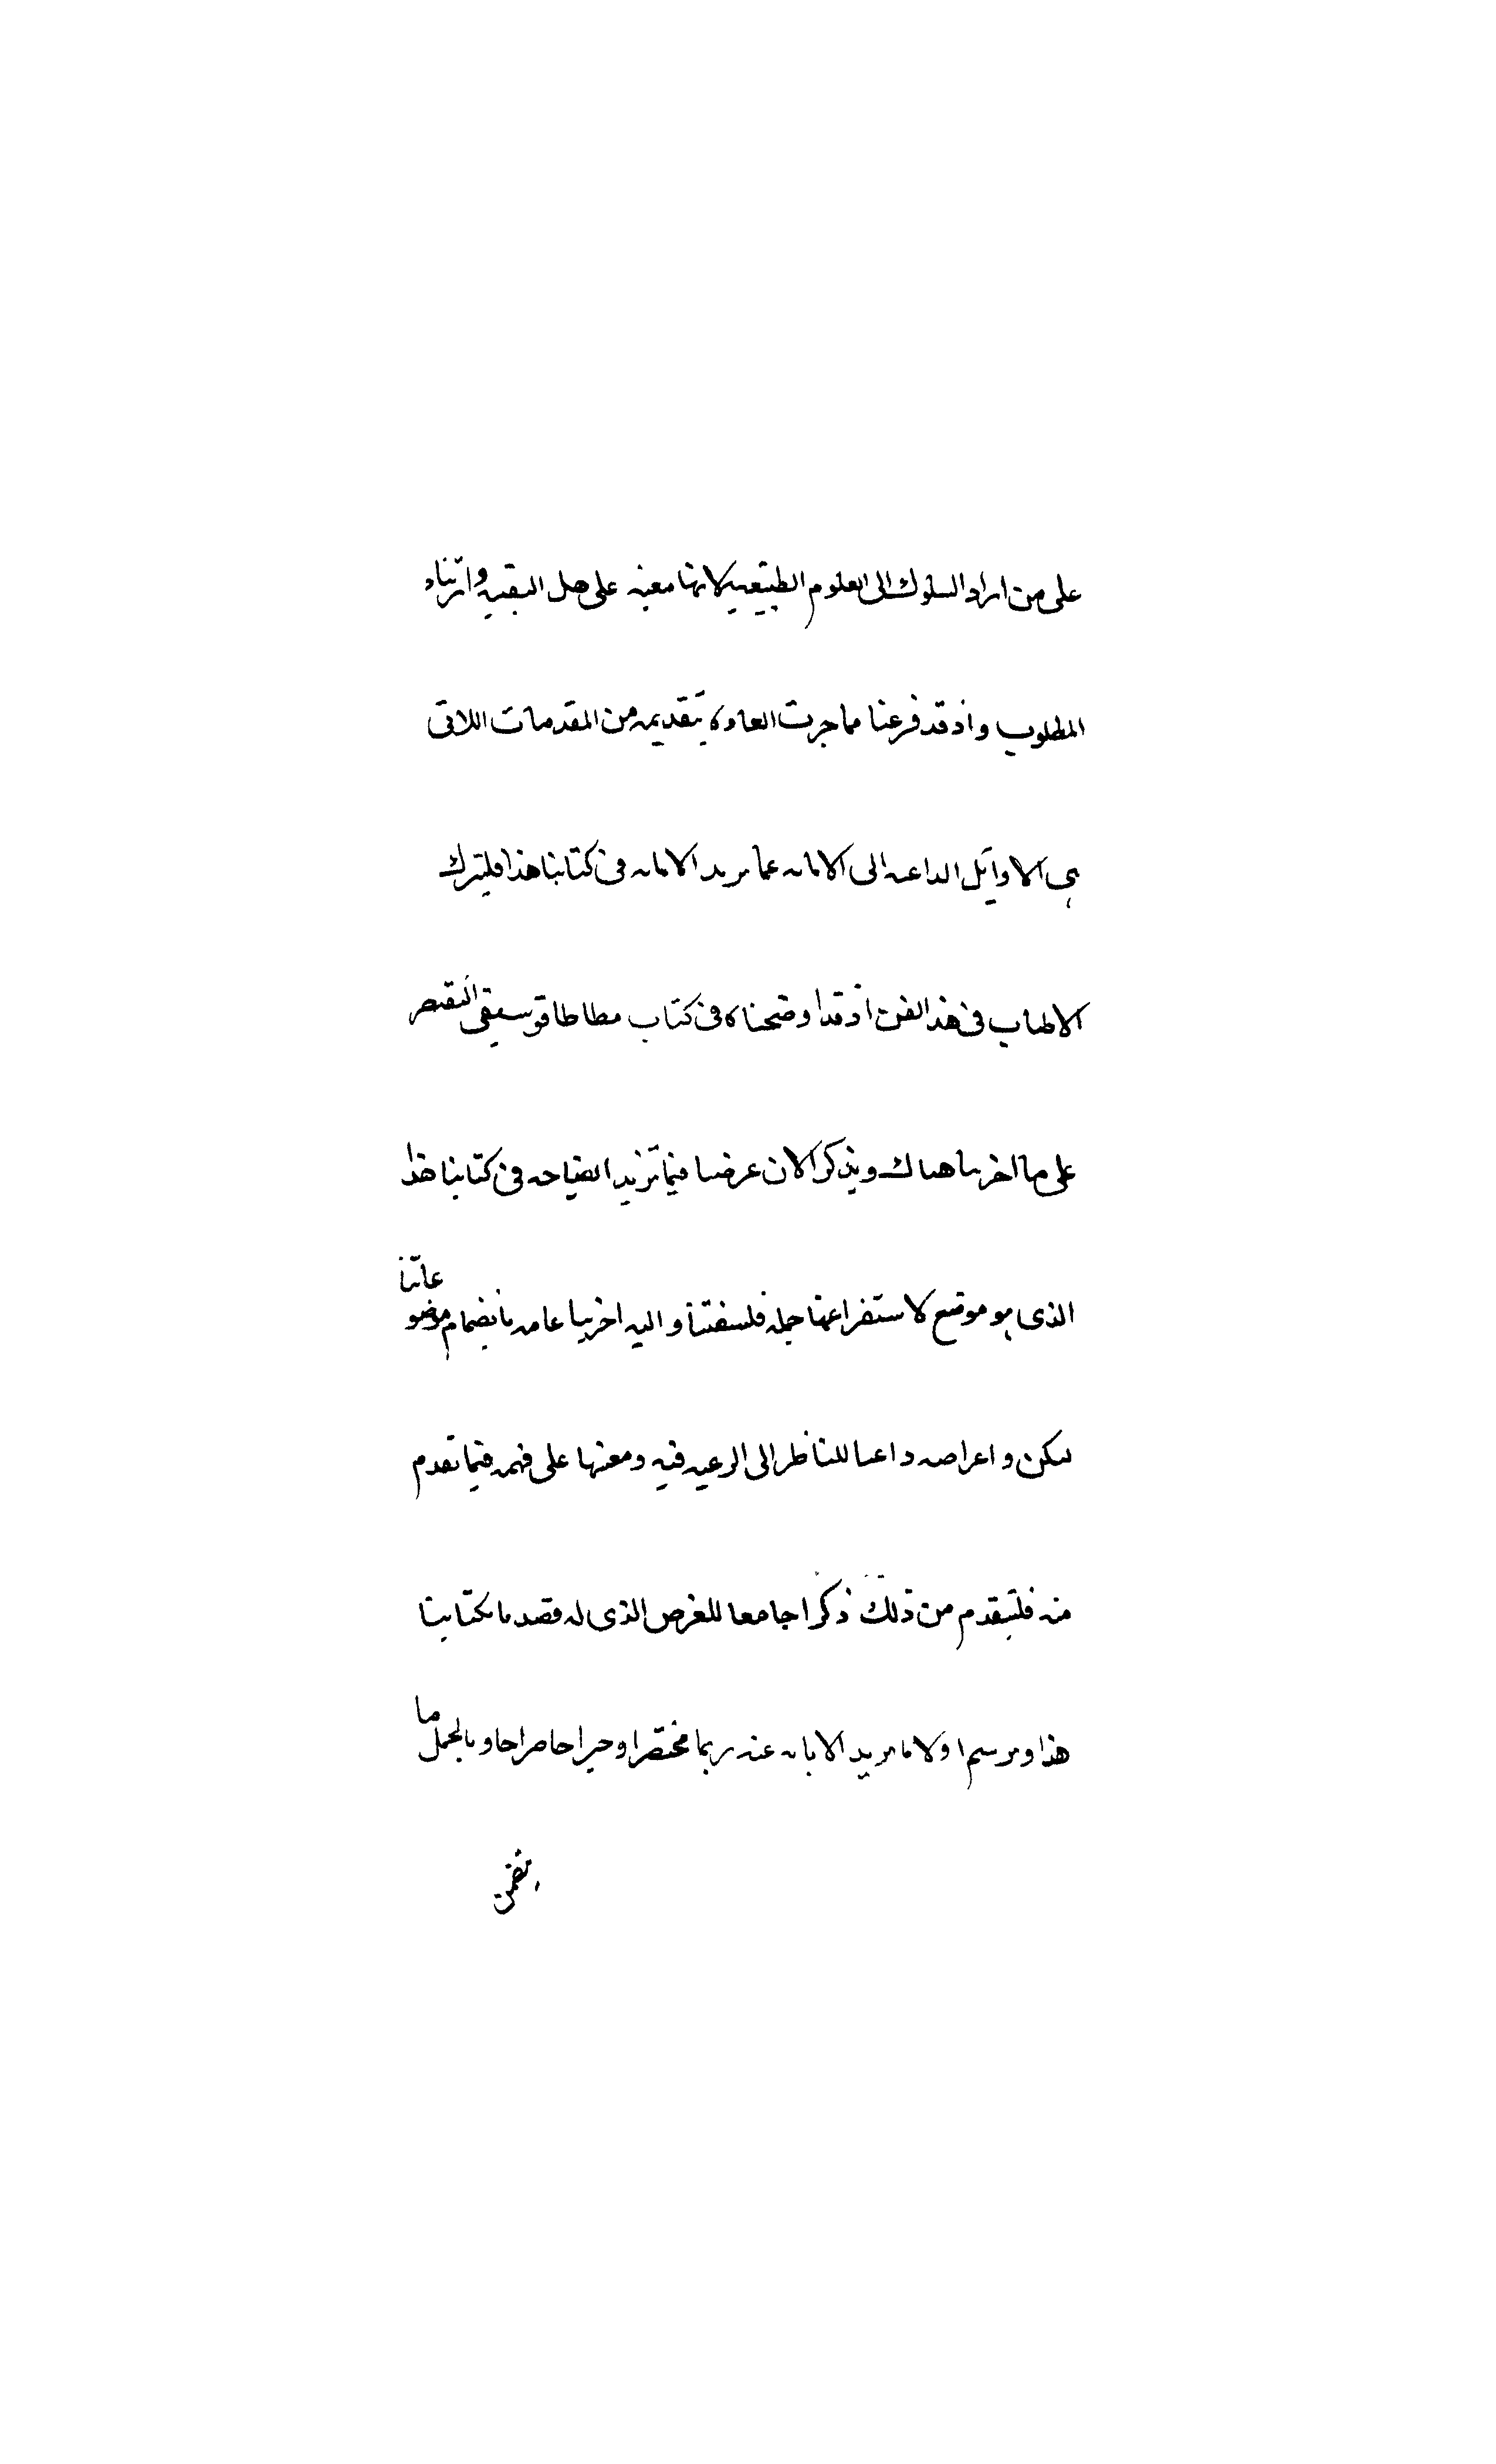 على من اراد السلوك الى العلوم الطبيعيه لانها معينه على هل البقيه وارتياد
المطلوب واذ قد فرغنا مما جرت العاده بتقديمه من المقدمات اللاتى
هى الاوايل الداعيه الى الابانه عما نريد الابانه فى كتابنا هذا فلنترك
الاطناب فى هذا الفن اذ قد اوضحناه فى كتاب مطاطاقوسيقى النقتصر
على ما اخرنا هناك ونذكر الان عرضنا فيما نريد ايضاحه فى كتابنا هذا
الذى هو موضع لاستفراغنا جمله فلسفتنا واليه اخرينا عامه بانضمام موضوعاتنا
ليكن واعراضه داعيا للناظر الى الرغبه فيه ومعينها على فهمه فيما تقدم
منه فلنقدم من ذلك ذكرا جامعا للغرض الذى له قصدنا بكتابنا
هذا ونرسم اولا ما نريد الابانه عنه ربما مختصرا وجيزا حاصرا حاويا لجمل ما
تضمن